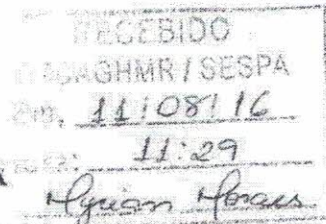 RECEBIDO
/ SESPA
Em, 11/08/16
11:29
Myrian Moraes